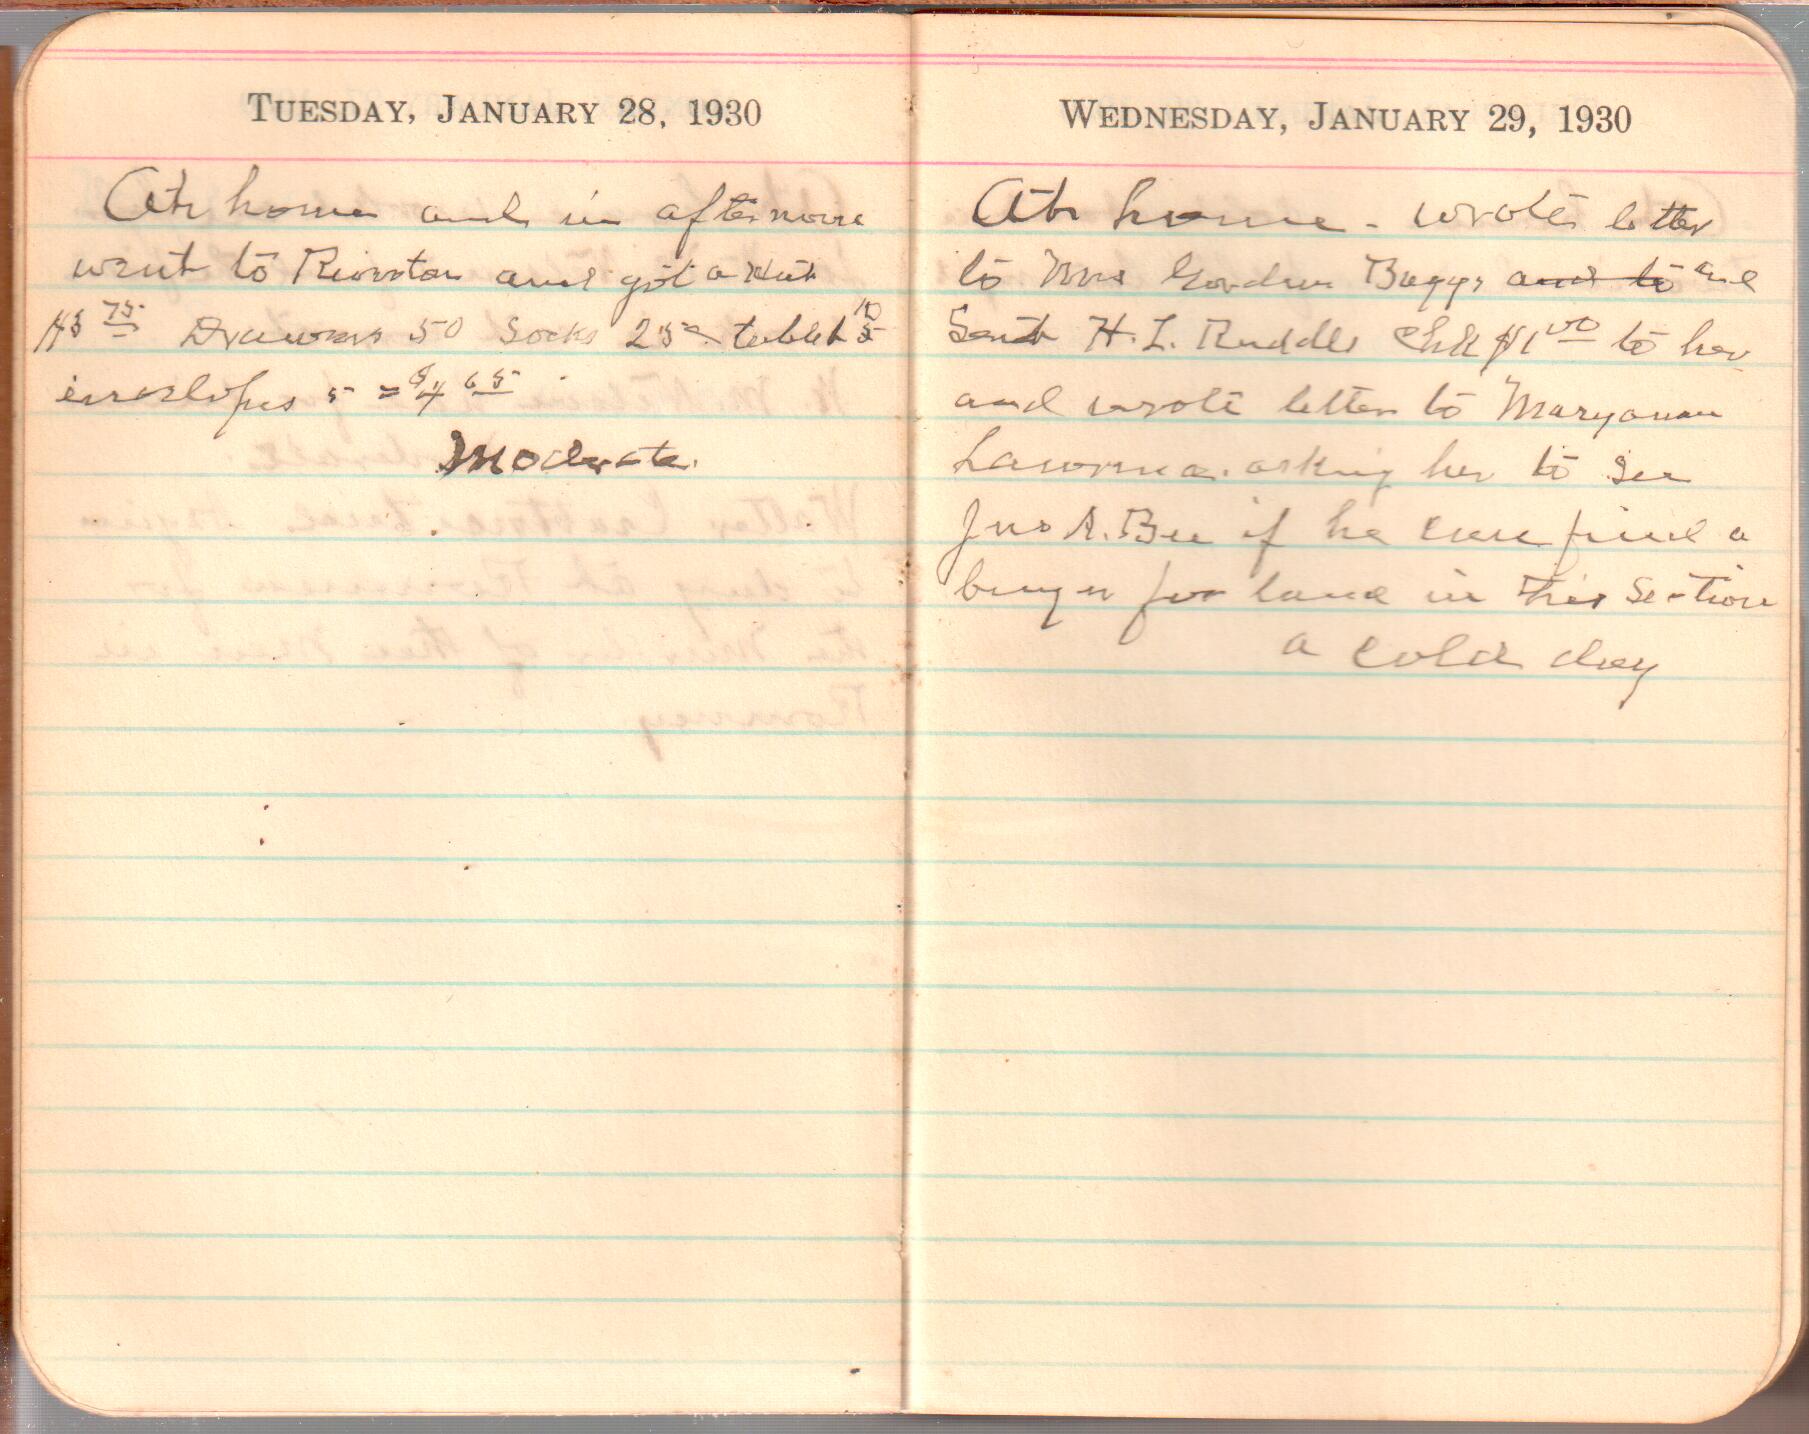 TUESDAY, JANUARY 28, 1930
At home and in afternoon
went to Riverton and got a Hat
$3 75 Drawers 50 Socks 25c tablet 10
envelopes 5 = $4 65
Moderate.
WEDNESDAY, JANUARY 29, 1930
At home - wrote letter
to Mrs Gordon Boggs and to and
Sent H. L. Ruddle Chk $1 00 to her
and wrote letter to Maryann
asking her to see
Jno A. Bee if he can find a
buyer for land in this Section
a cold day